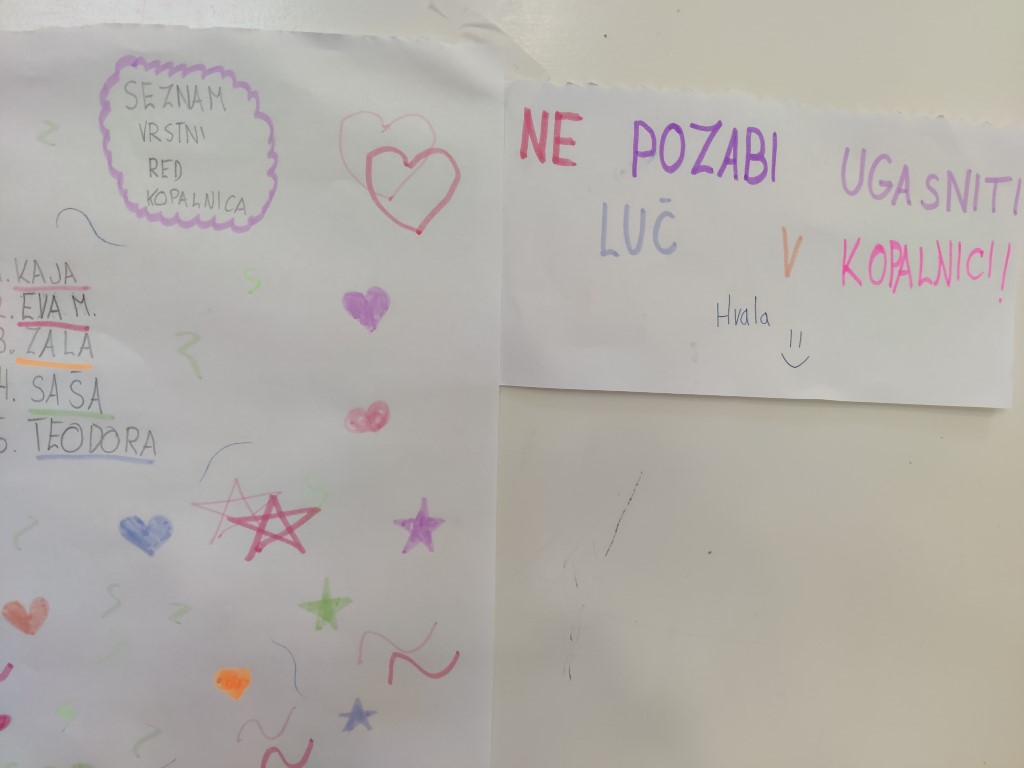 SEZNAM
VRSTNI
RED
KOPALNICA
1. KAJA
2. EVA M.
3. ZALA
4. SAŠA
5. TEODORA
NE POZABI UGASNITI
LUČ V KOPALNICI!
Hvala